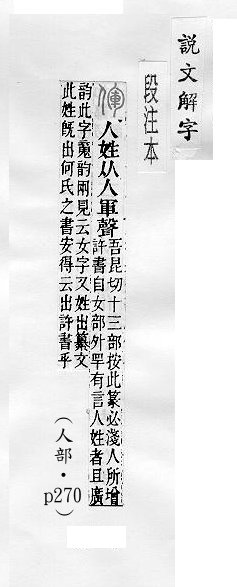 說文解字
段注本
㑮
人姓从人軍聲
吾昆切十三部按此篆必淺人所增
許書自女部外罕有言人姓者且廣
韵此字䰟韵兩見云女字又姓出纂文
此姓旣出何氏之書安得云出許書乎
（人部・p270）